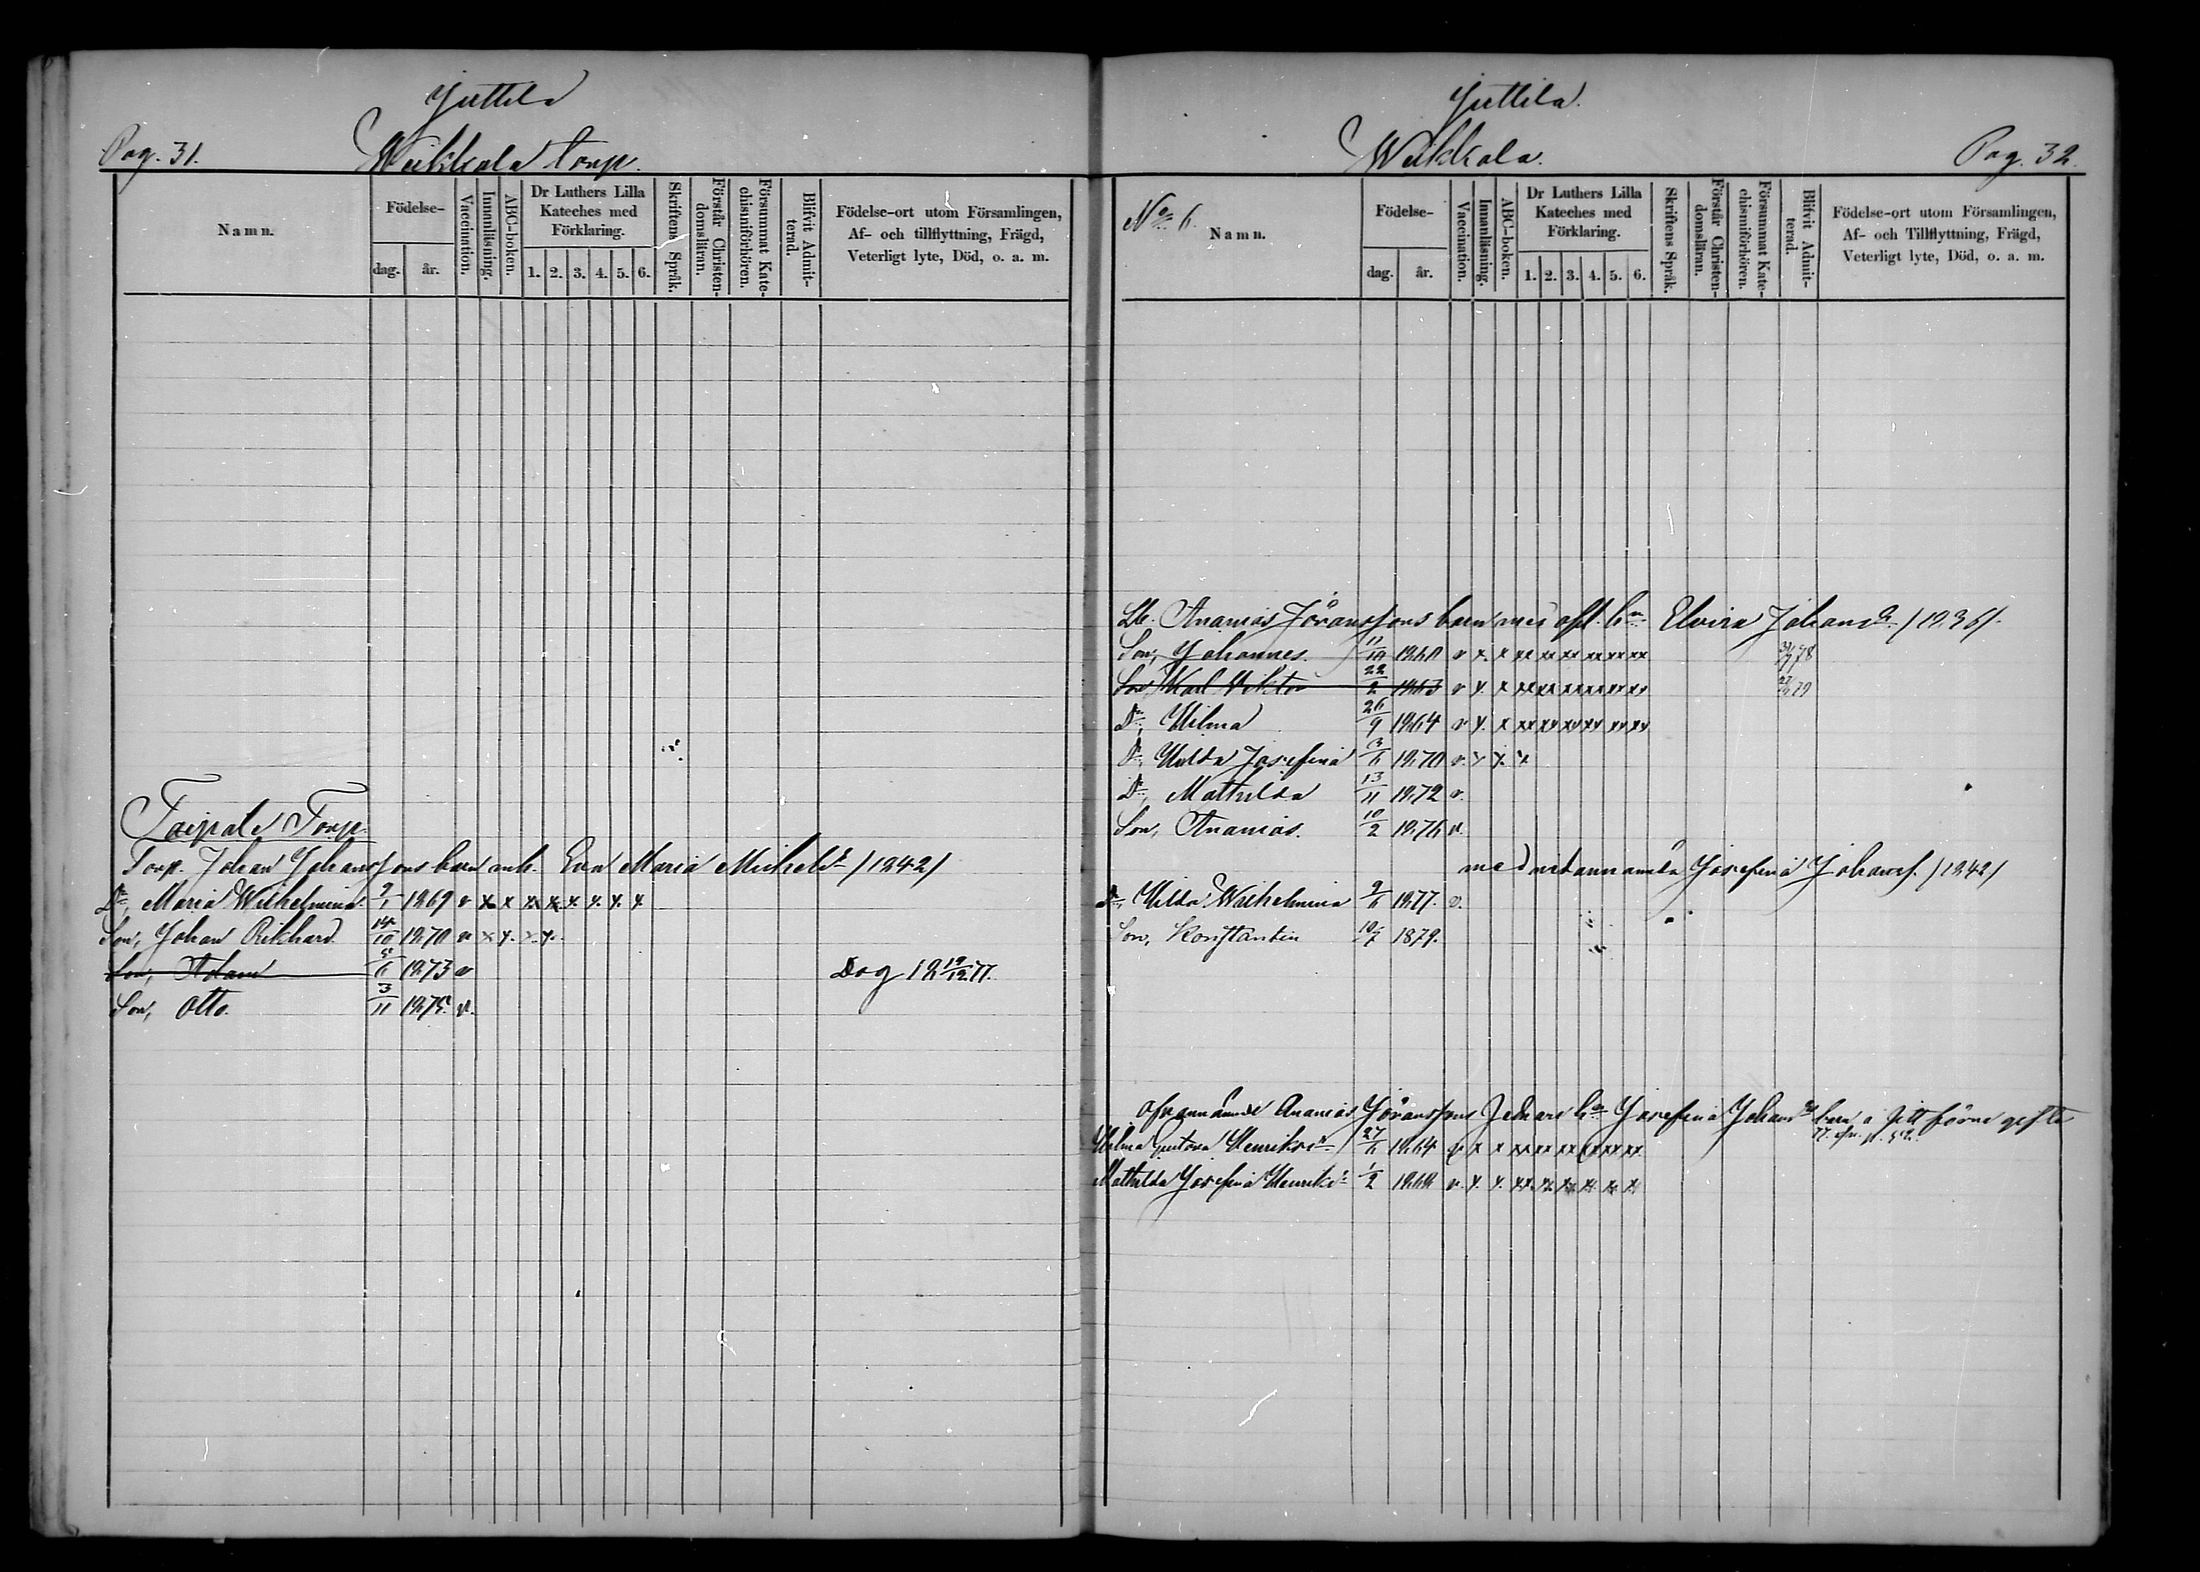 Juttila
Pag. 31.
Weikkala torp.
Namn.
Födelse-
dag.
år.
Vaccination.
Innanläsning.
ABC-boken.
Dr Luthers Lilla
Kateches med
Förklaring.
1. 2. 3. 4. 5. 6.
Skriftens Språk.
Förstår Christen-
domsläran.
Försummat Kate-
chismiförhören.
Blifvit Admit-
terad.
Födelse-ort utom Församlingen,
Af- och tillflyttning, Frägd,
Veterligt lyte, Död, o. a. m.
Taipale Torp.
Torp. Johan Johanssons barn m. h. Eva Maria Michelsdr /1842/
Dr, Maria Wilhelmina 9/1 1869 v x x x x x x x x
Son, Johan Rikhard 14/10 1870 v x x. x. x.
Son, Adam 5/6 1873 v Dog 18 19/12 77.
Son, Otto. 3/11 1875. v.
Juttila.
Weikkala.
Pag. 32.
No 6.
Namn.
Födelse-
dag.
år.
Vaccination.
Innanläsning.
ABC-boken.
Dr Luthers Lilla
Kateches med
Förklaring.
1. 2. 3. 4. 5. 6.
Skriftens Språk.
Förstår Christen-
domsläran.
Försummat Kate-
chismiförhören.
Blifvit Admit-
terad.
Födelse-ort utom Församlingen,
Af- och Tillflyttning, Frägd,
Veterligt lyte, Död, o. a. m.
Ananias Jöranssons barn med afl. hu Elvira Johansdr /1836/.
Son, Johannes. v x. x xx xx xx xx xx xx
Son, Karl Viktor 22/2 1863 v x. x xx xx xx xx xx xx
Dr, Wilma 26/9 1864 v x. x xx xx xx xx xx xx
Dr, Hulda Josefina 3/6 1870 v. x x. x
Dr, Mathilda 13/11 1872 v.
Son, Ananias. 10/2 1876 v.
med nedannämda Josefina Johansd. /1842/
Dr, Hilda Wilhelmina 9/6 1877. v.
Son, Konstantin 10/7 1879.
Ofvannämnde Ananias Jöranssons hu Josefina Johansdr barn förra gifte
Wilma Gustava Henriksdr 27/6 1864 v x x xx xx xx xx xx xx
Mathilda Josefina Henriksdr 1/2 1868 v. x. x. xx. xx xx xx xx xx